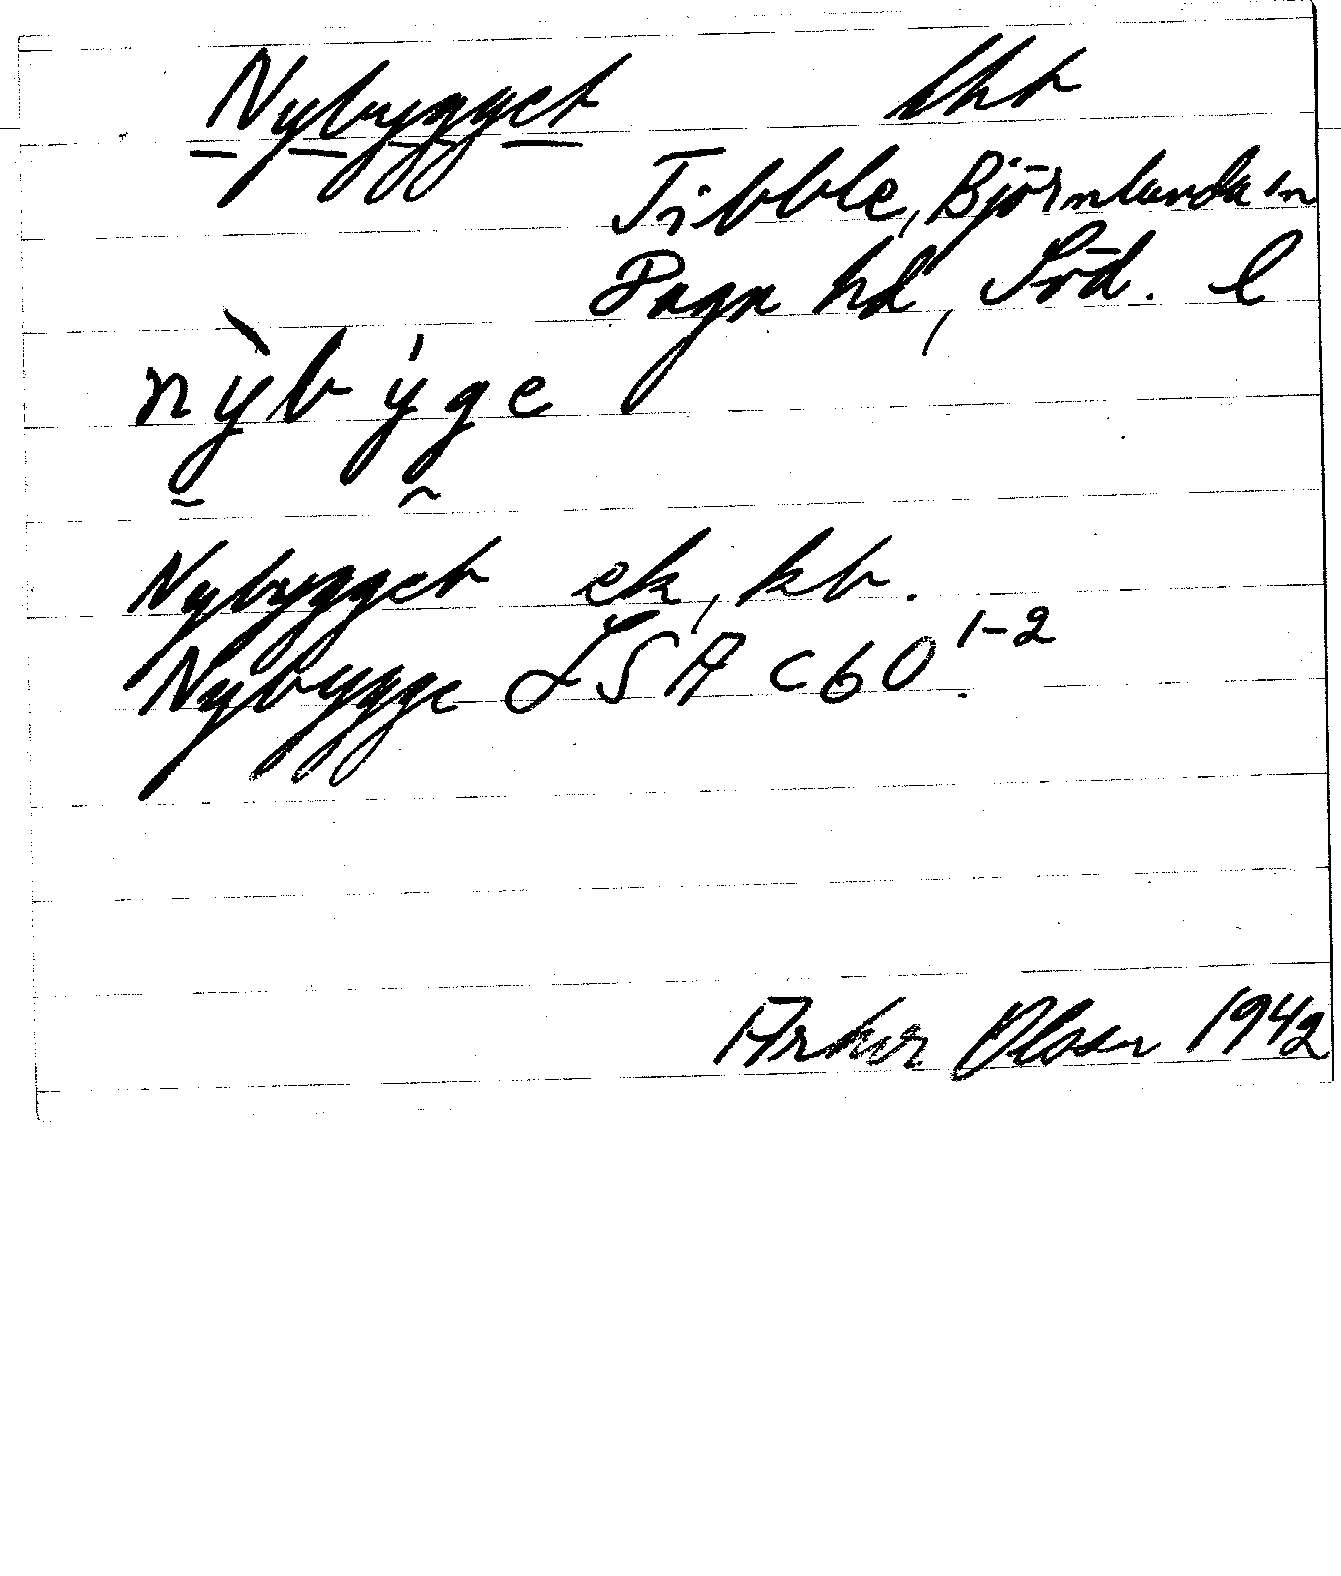 Nybygget lht
Tibble, Björnlunda sn
Daga hd, Söd. l
nỳbýge
Nybygget ek, kb.
Nybygge LSA C60 1-2.
Artur Olsson 1942